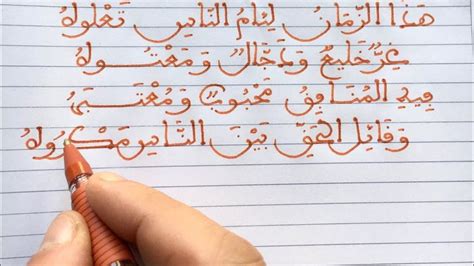 هَذَا الزَّمَانُ لِئَامُ النَّاسِ تَعْلُوهُ
غِرٌّ خَلِيعٌ وَدَجَّالٌ وَمَعْتُوهُ
فِيهِ المُنَافِقُ مَحْبُوبٌ
وَقَائِلُ الحَقِّ بَيْنَ النَّاسِ مَكْرُوهُ